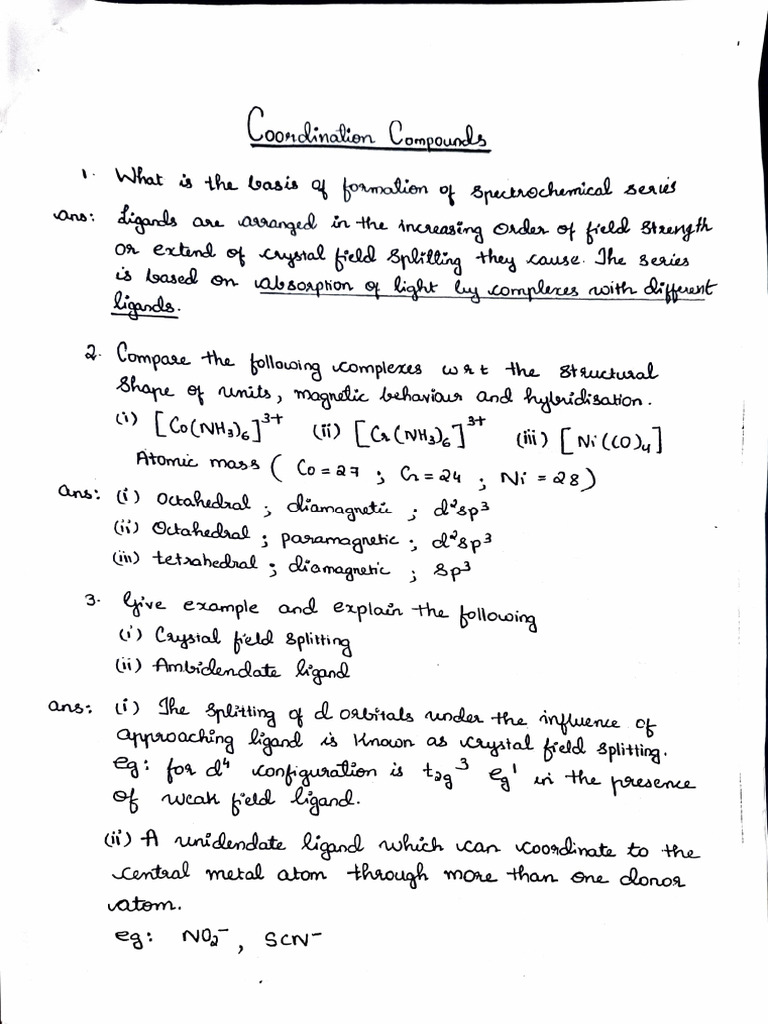 Coordination Compounds
1. What is the basis of formation of spectrochemical series
ans: Ligands are arranged in the increasing order of field strength
or extend of crystal field splitting they cause. The series
is based on absorption of light by complexes with different
ligands.
2. Compare the following complexes w r t the structural
shape of units, magnetic behaviour and hybridisation.
(i) [Co(NH₃)₆]³⁺ (ii) [Cr(NH₃)₆]³⁺ (iii) [Ni(CO)₄]
Atomic mass ( Co = 27 ; Cr = 24 ; Ni = 28 )
ans: (i) octahedral ; diamagnetic ; d²sp³
(ii) Octahedral ; paramagnetic ; d²sp³
(iii) tetrahedral ; diamagnetic ; sp³
3. Give example and explain the following
(i) Crystal field splitting
(ii) Ambidendate ligand
ans: (i) The splitting of d orbitals under the influence of
approaching ligand is known as crystal field splitting.
eg: for d⁴ configuration is t₂g³ eg¹ in the presence
of weak field ligand.
(ii) A unidendate ligand which can coordinate to the
central metal atom through more than one donor
atom.
eg: NO₂⁻, SCN⁻